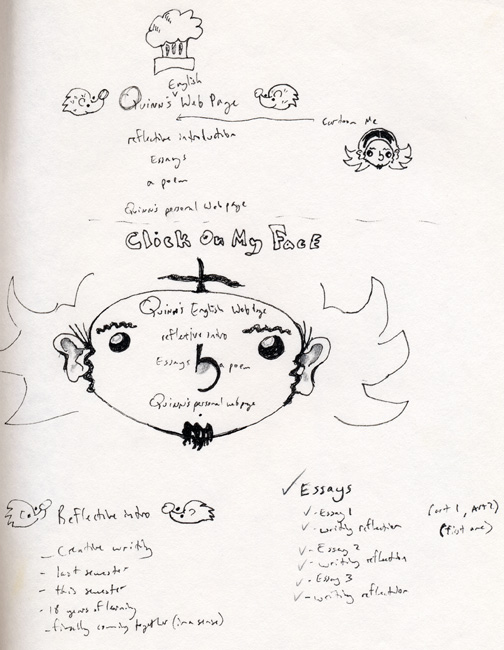 English
Quinn's Web Page
Cartoon Me
reflective introduction
Essays
a poem
Quinn's personal webpage
Click On My Face
Quinn's English Webpage
reflective intro
Essays
a poem
Quinn's personal webpage
Reflective intro
- Creative writing
- last semester
- this semester
- 18 years of learning
- finally coming together (in a sense)
✓ Essays
✓ - Essay 1
✓ - writing reflection
✓ - Essay 2
✓ - writing reflection
✓ - Essay 3
✓ - writing reflection
(art 1, art 2)
(first one)